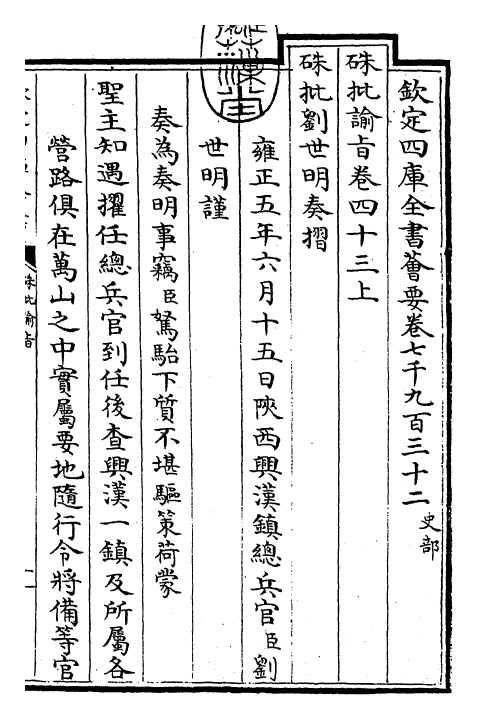 欽定四庫全書薈要卷七千九百三十二 史部
硃批諭旨卷四十三上
硃批劉世明奏摺
雍正五年六月十五日陝西興漢鎮總兵官臣劉
世明謹
奏為奏明事竊臣駑駘下質不堪驅策荷蒙
聖主知遇擢任總兵官到任後查興漢一鎮及所屬各
營路俱在萬山之中實屬要地隨行令將備等官
硃批諭旨